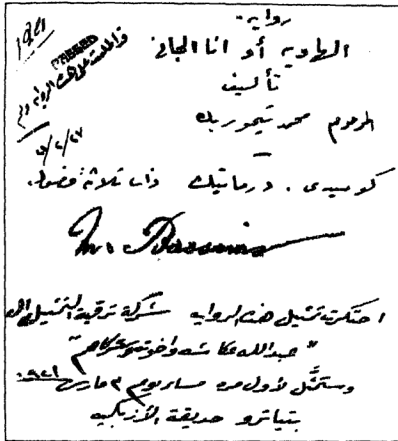 1921
PASSED
على هذه الروايه
روايه.
الهاويه أو انا الجانى
تأليف
المرحوم محمد تيمور بك
كوميدى . درماتيك ذات ثلاثة فصول.
احتكرت تمثيل هذه الروايه شركة ترقية التمثيل ال
" عبدالله عكاشه واخوته وشركاهم "
وستمثَّل لأول مره مساء يوم مارس ١٩٢١
بتياترو حديقة الأزبكيه